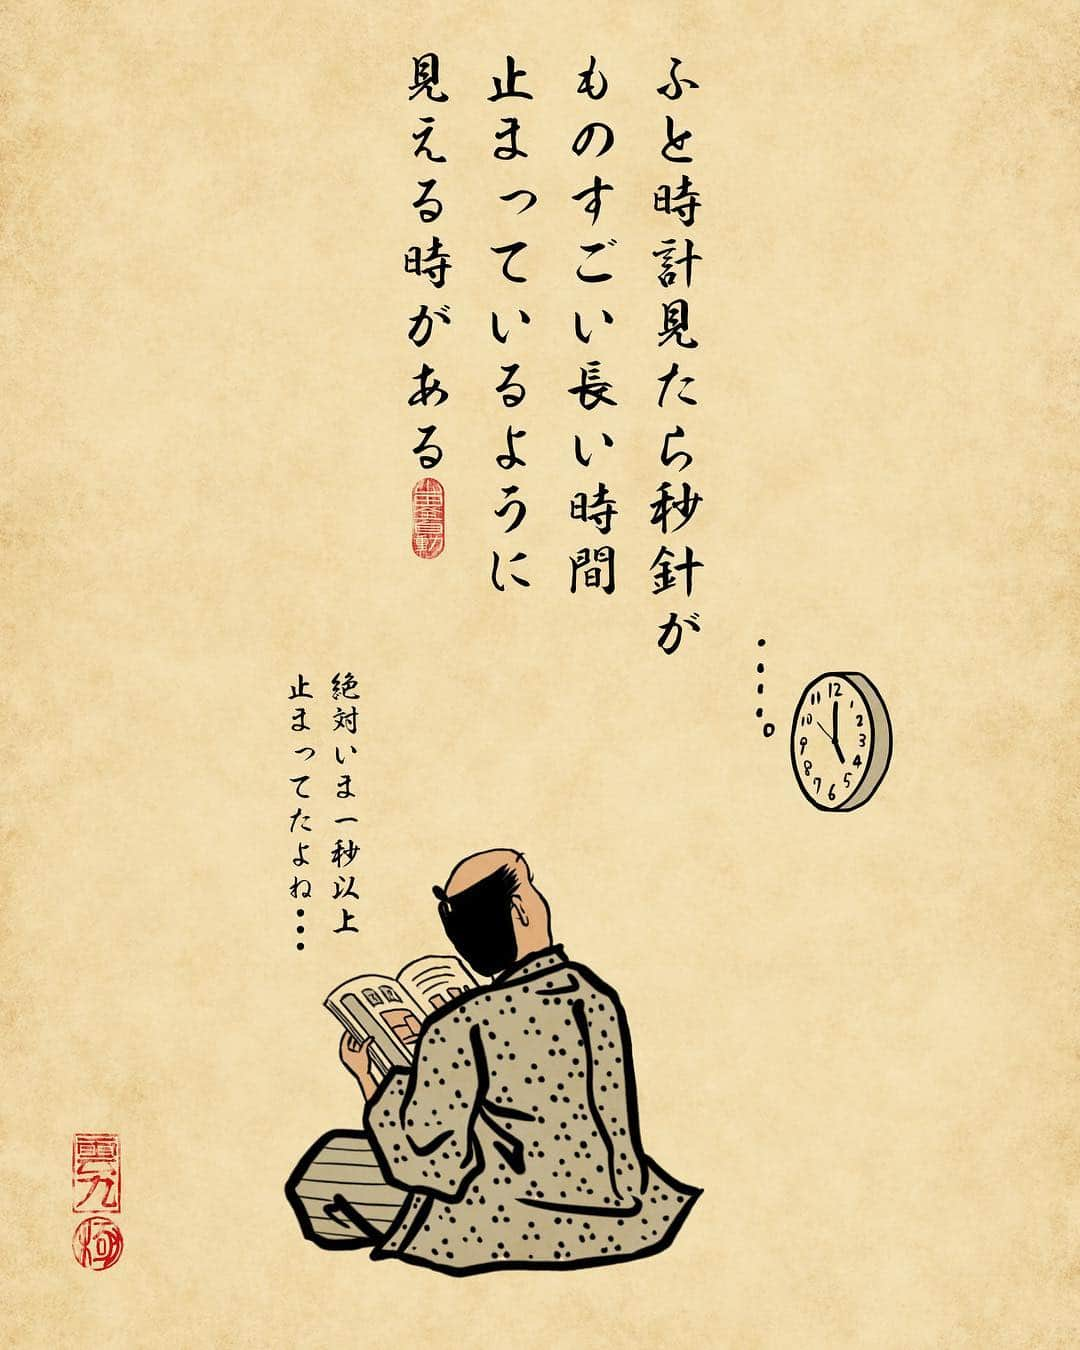 ふと時計見たら秒針が
ものすごい長い時間
止まっているように
見える時がある
・・・・。
12
1
2
3
4
5
6
7
8
9
10
11
絶対いま一秒以上
止まってたよね・・・